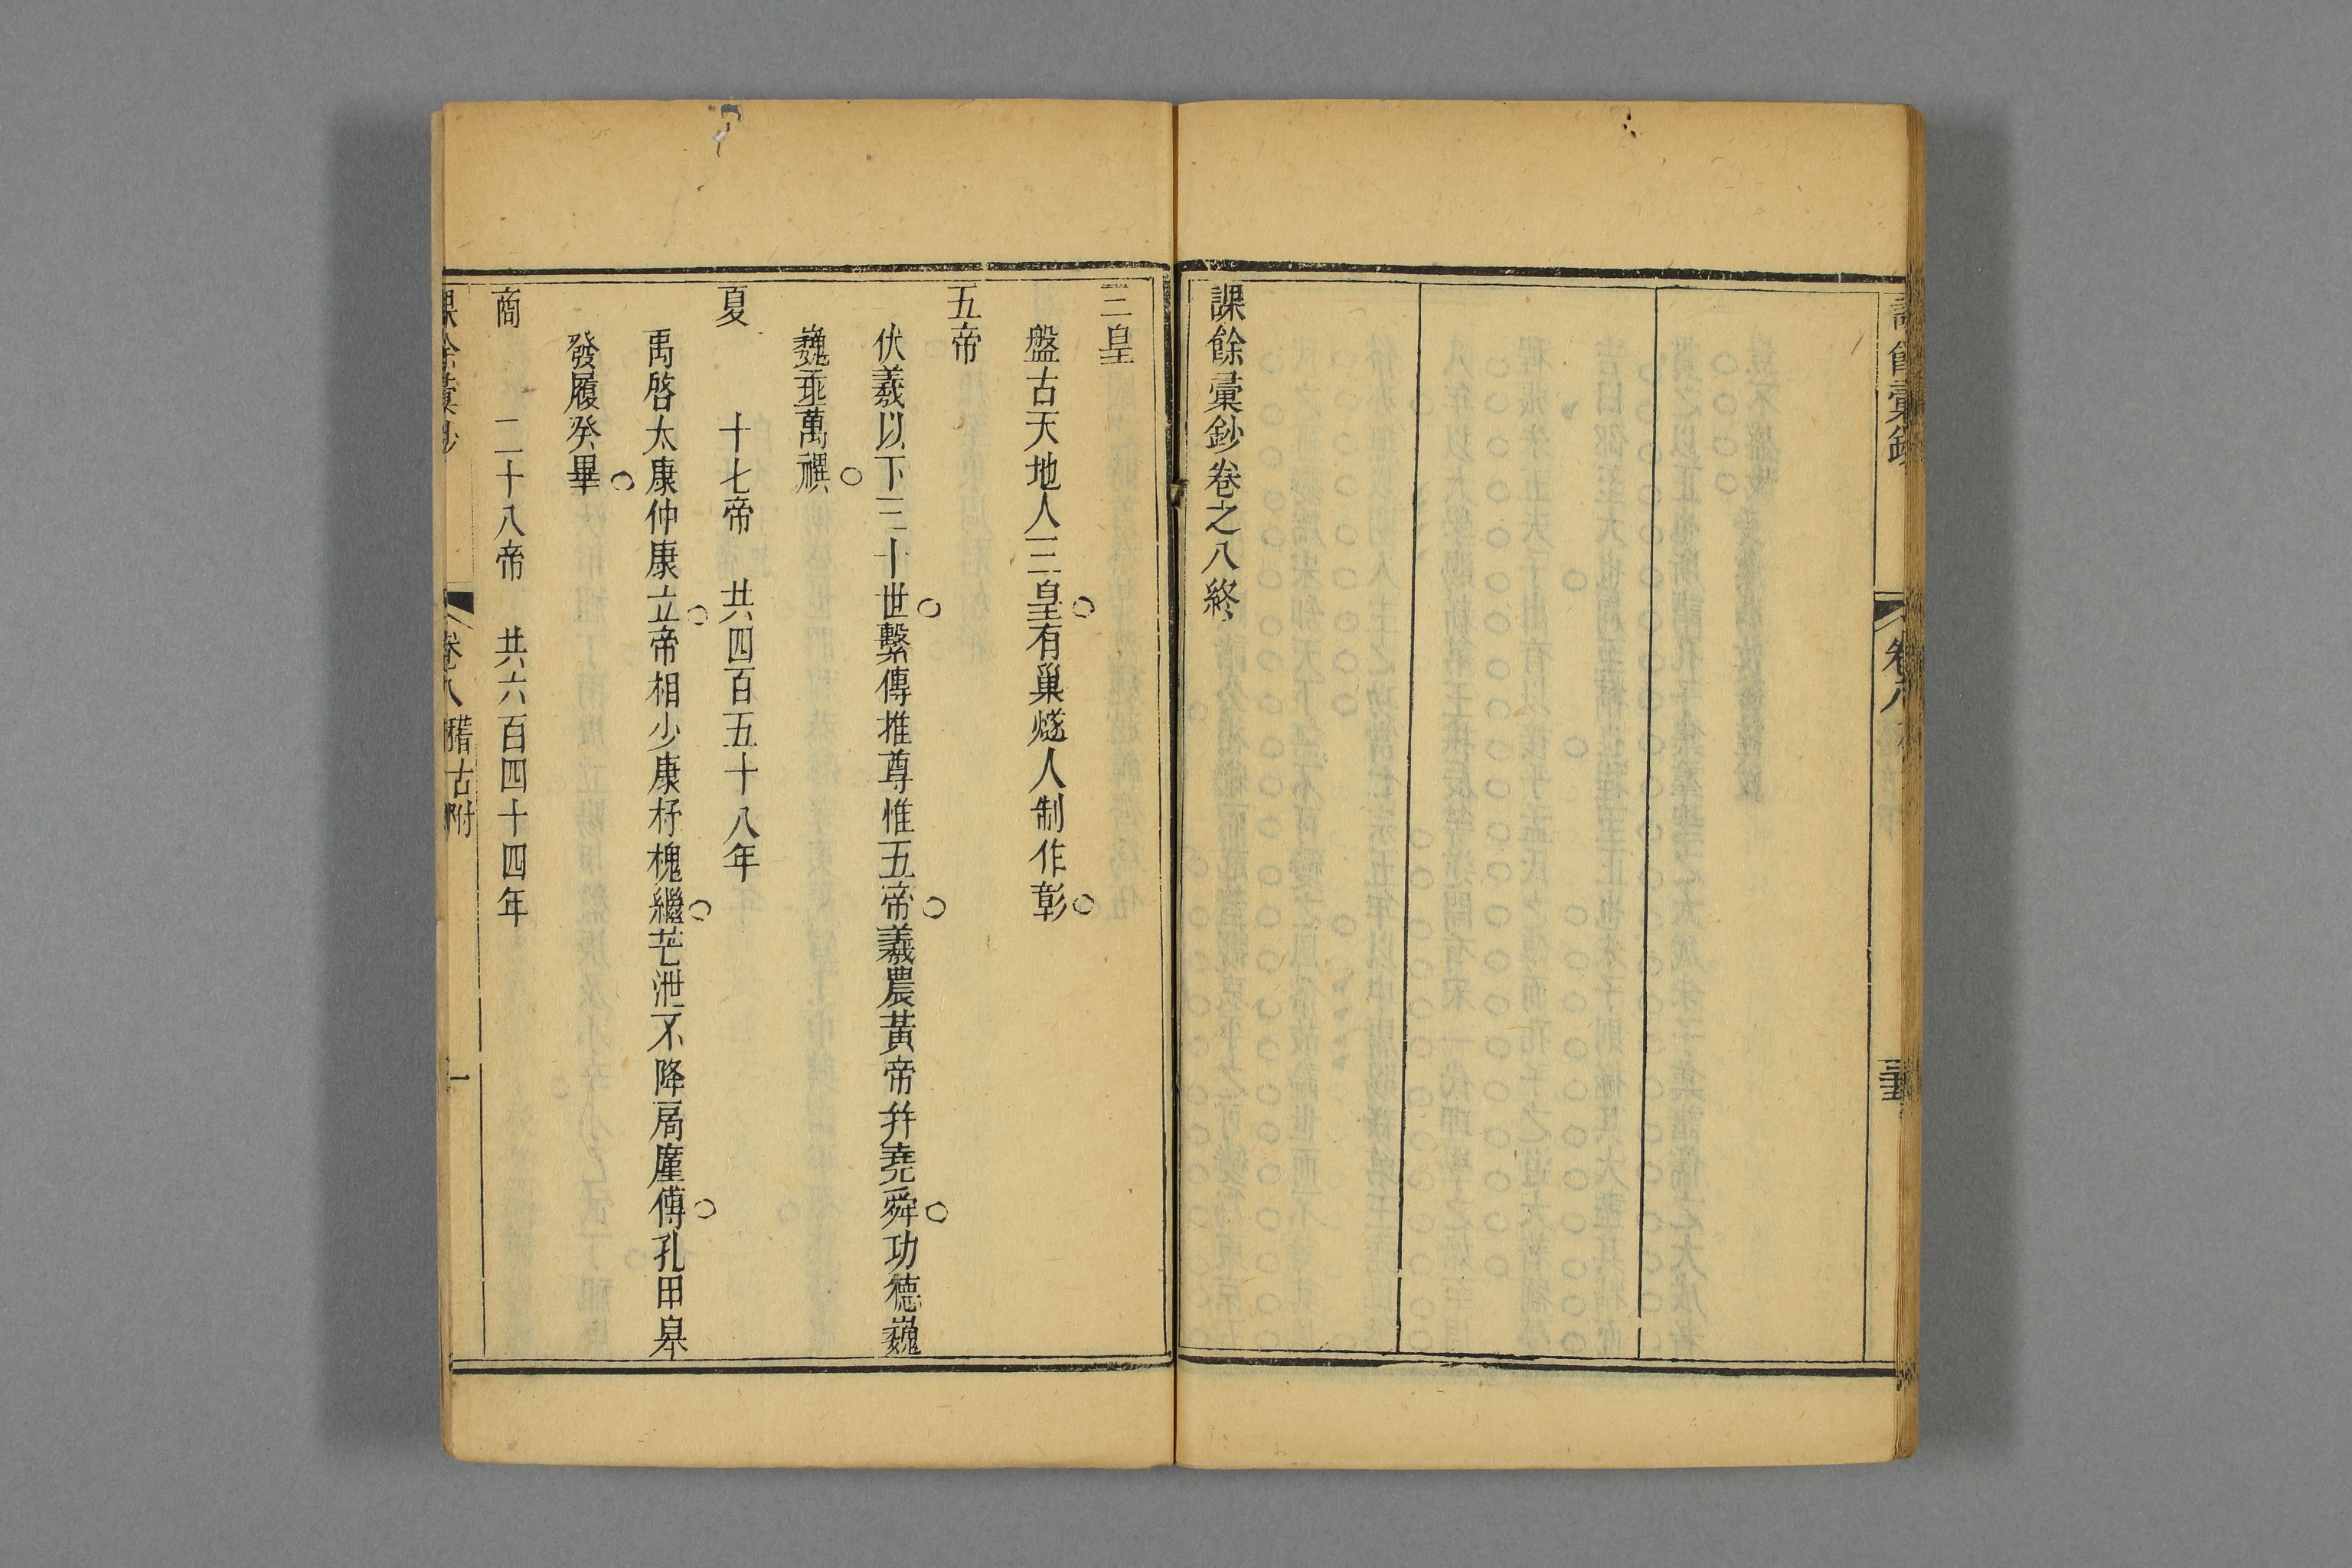 課餘彙鈔
卷八
課餘彙鈔卷之八終
三皇
盤古天地人三皇有巢燧人制作彰
五帝
伏羲以下三十世繫傳推尊惟五帝羲農黃帝并堯舜功德巍
巍垂萬禩
夏 十七帝 共四百五十八年
禹啓太康仲康立帝相少康杼槐繼芒泄不降扃廑傅孔甲皋
發履癸畢
商 二十八帝 共六百四十四年
課餘彙鈔 卷八 稽古附 一